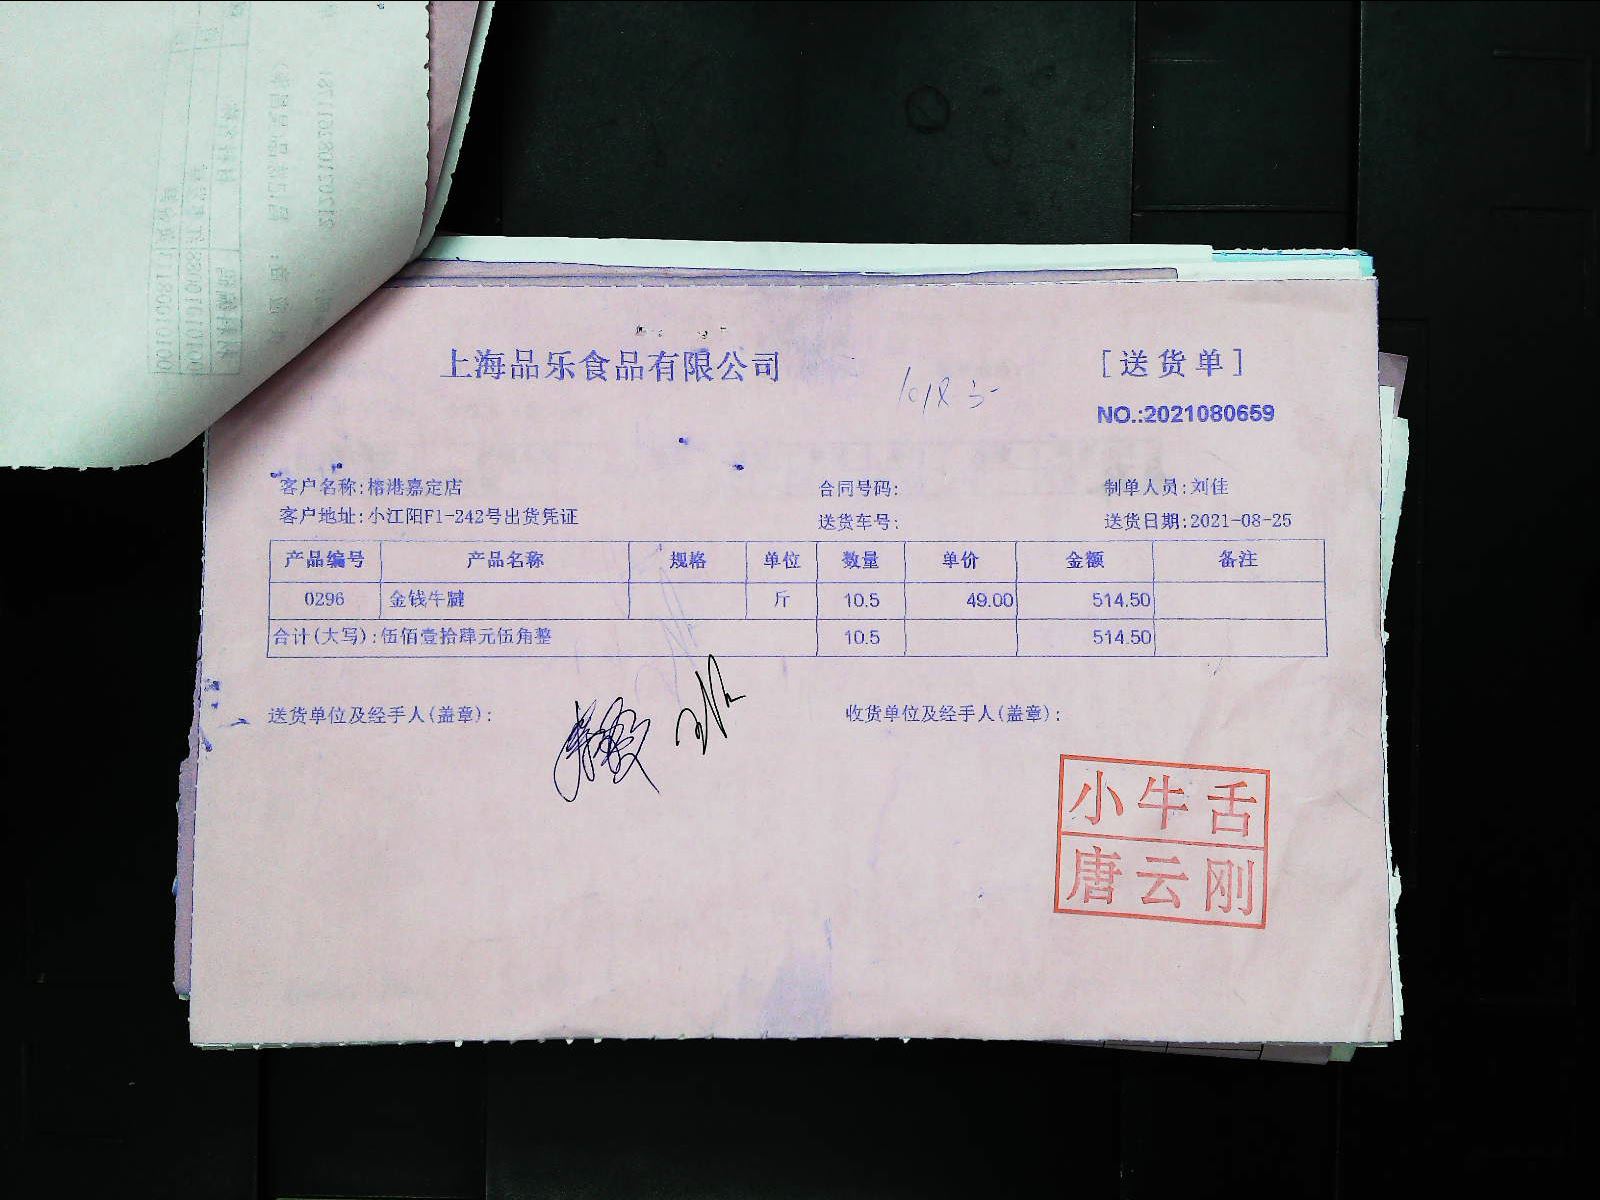 上海品乐食品有限公司
[送货单]
NO.:2021080659
客户名称:榕港嘉定店 合同号码: 制单人员:刘佳
客户地址:小江阳F1-242号出货凭证 送货车号: 送货日期:2021-08-25
产品编号 产品名称 规格 单位 数量 单价 金额 备注
0296 金钱牛腱 斤 10.5 49.00 514.50
合计(大写):伍佰壹拾肆元伍角整 10.5 514.50
送货单位及经手人(盖章): 收货单位及经手人(盖章):
小牛舌
唐云刚